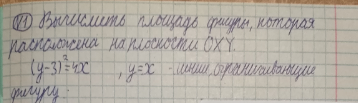 №1 Вычислить площадь фигуры, которая
расположена на плоскости OXY.
(y-3)²=4x , y=x - линии ограничивающие
фигуру.